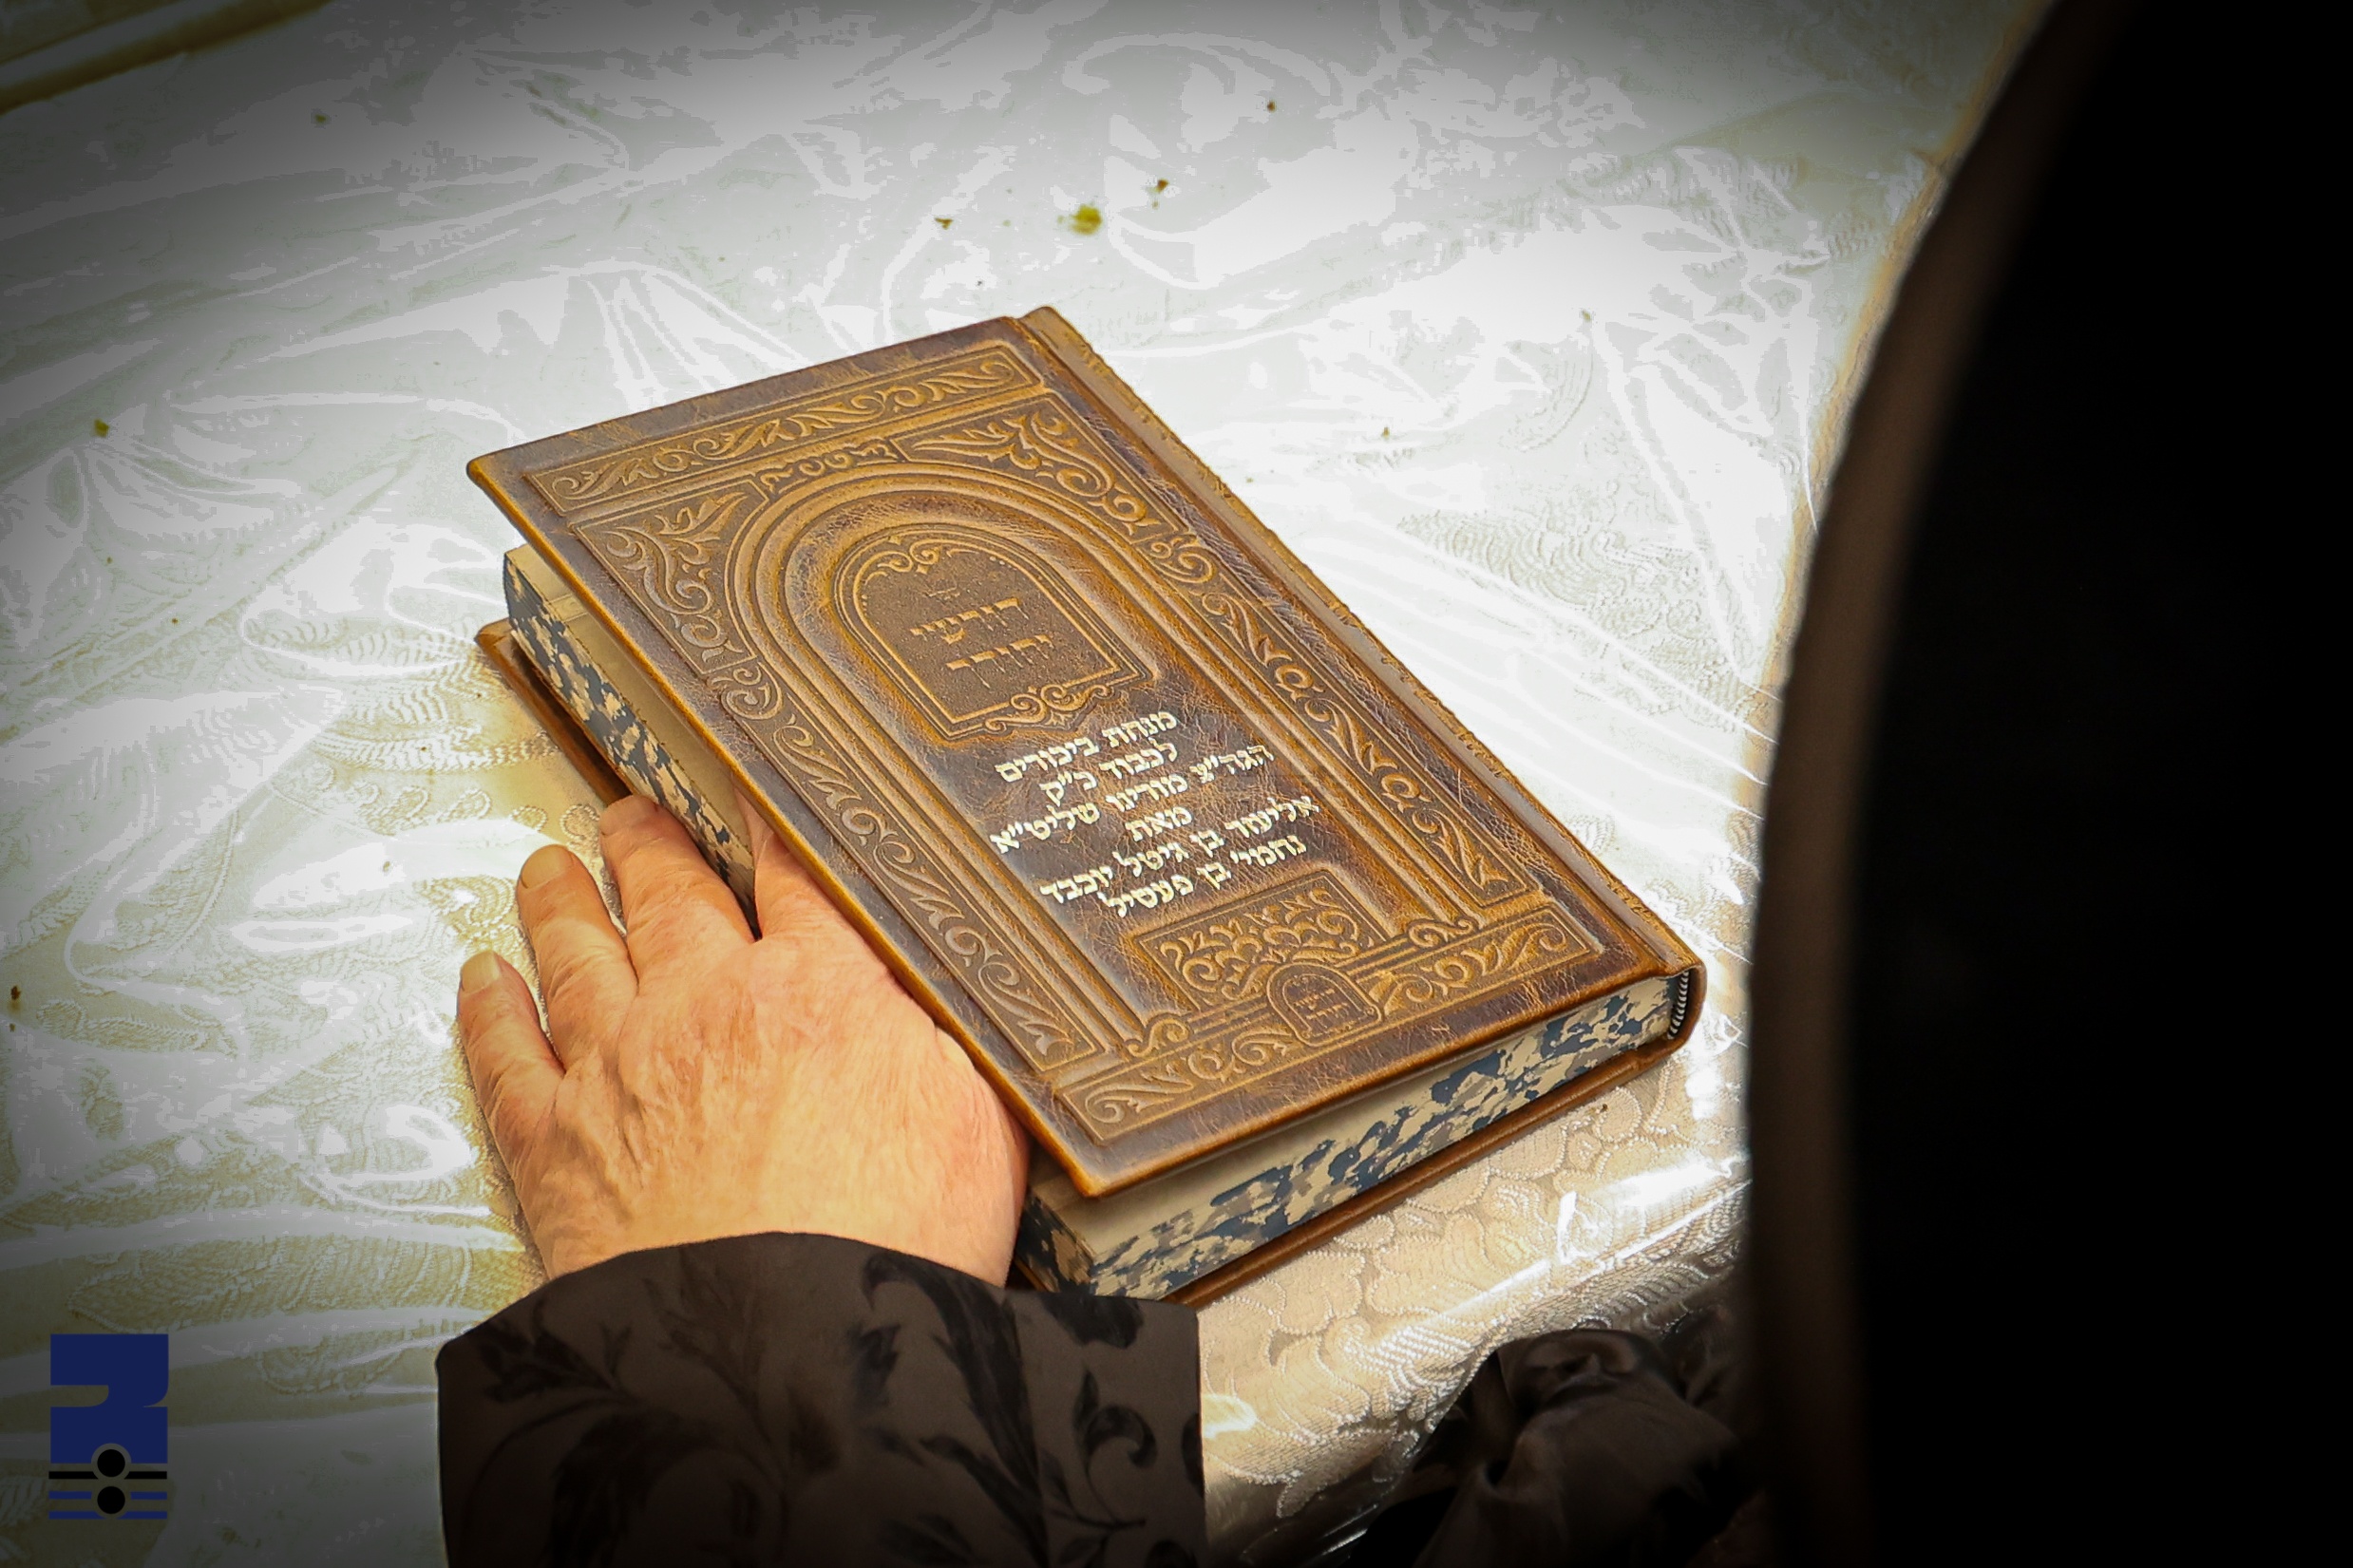 דורשי
יחודך
מנחת ביכורים
לכבוד כ"ק
הגה"צ מורינו שליט"א
מאת
אליעזר בן גיטל יוכבד
נחמי' בן פעסיל